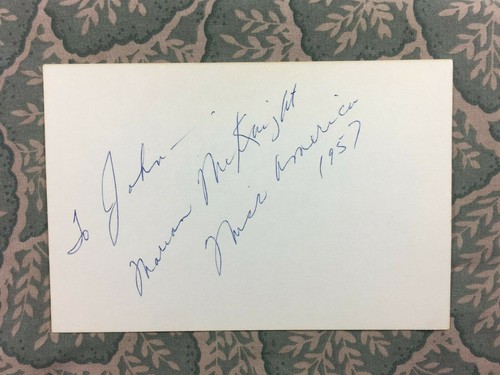 To John —
Marian McKnight
Miss America
1957